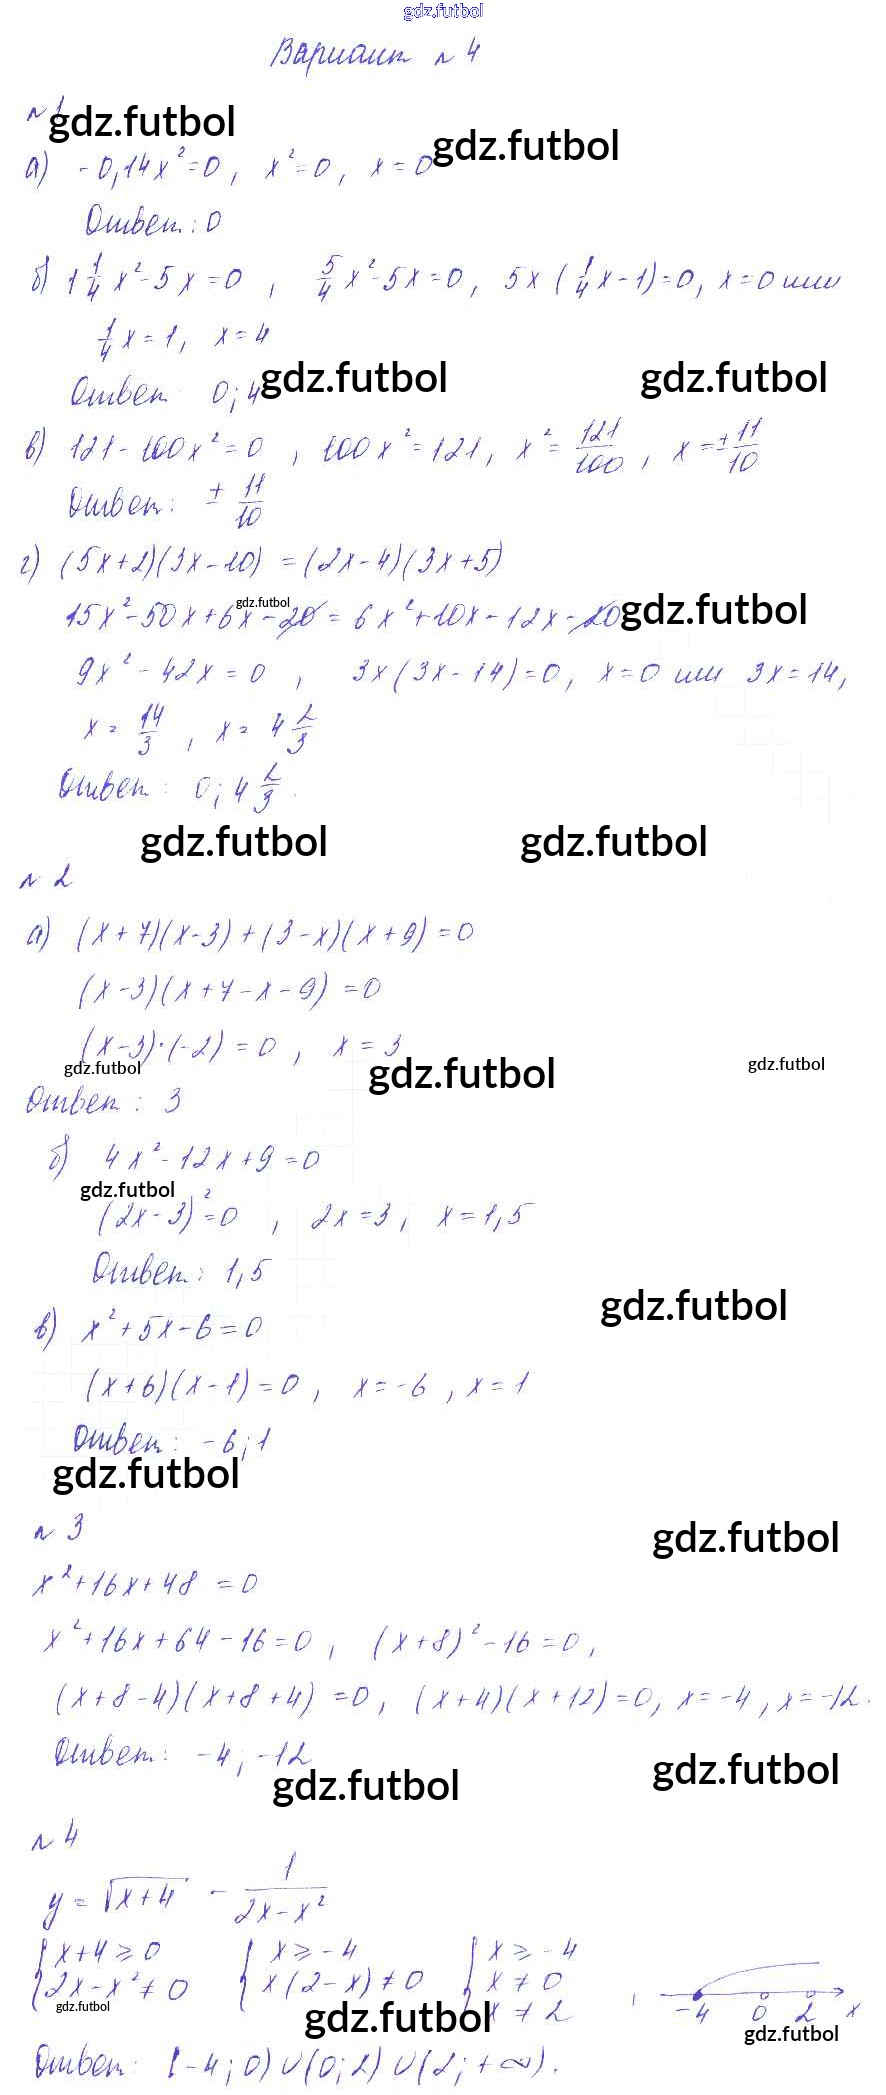 gdz.futbol
Вариант №4
№1
gdz.futbol
gdz.futbol
а) -0,14x²=0, x²=0, x=0
Ответ: 0
б) 1 1/4 x²-5x=0, 5/4 x²-5x=0, 5x(1/4 x-1)=0, x=0 или
1/4 x=1, x=4
gdz.futbol gdz.futbol
Ответ 0; 4
в) 121-100x²=0, 100x²=121, x²=121/100, x=±11/10
Ответ: ± 11/10
г) (5x+2)(3x-10)=(2x-4)(3x+5)
gdz.futbol gdz.futbol
15x²-50x+6x-20=6x²+10x-12x-20
9x²-42x=0, 3x(3x-14)=0, x=0 или 3x=14,
x=14/3, x=4 2/3
Ответ: 0; 4 2/3.
gdz.futbol gdz.futbol
№2
а) (x+7)(x-3)+(3-x)(x+9)=0
(x-3)(x+7-x-9)=0
(x-3)·(-2)=0, x=3
gdz.futbol gdz.futbol gdz.futbol
Ответ: 3
б) 4x²-12x+9=0
gdz.futbol
(2x-3)²=0, 2x=3, x=1,5
Ответ: 1,5
gdz.futbol
в) x²+5x-6=0
(x+6)(x-1)=0, x=-6, x=1
Ответ: -6; 1
gdz.futbol
№3
gdz.futbol
x²+16x+48=0
x²+16x+64-16=0, (x+8)²-16=0,
(x+8-4)(x+8+4)=0, (x+4)(x+12)=0, x=-4, x=-12.
Ответ: -4; -12
gdz.futbol gdz.futbol
№4
y=√x+4 - 1/(2x-x²)
{x+4≥0 {x≥-4 {x≥-4
2x-x²≠0 x(2-x)≠0 x≠0
x≠2
, -4 0 2 x
gdz.futbol gdz.futbol gdz.futbol
Ответ: [-4; 0)∪(0; 2)∪(2; +∞).